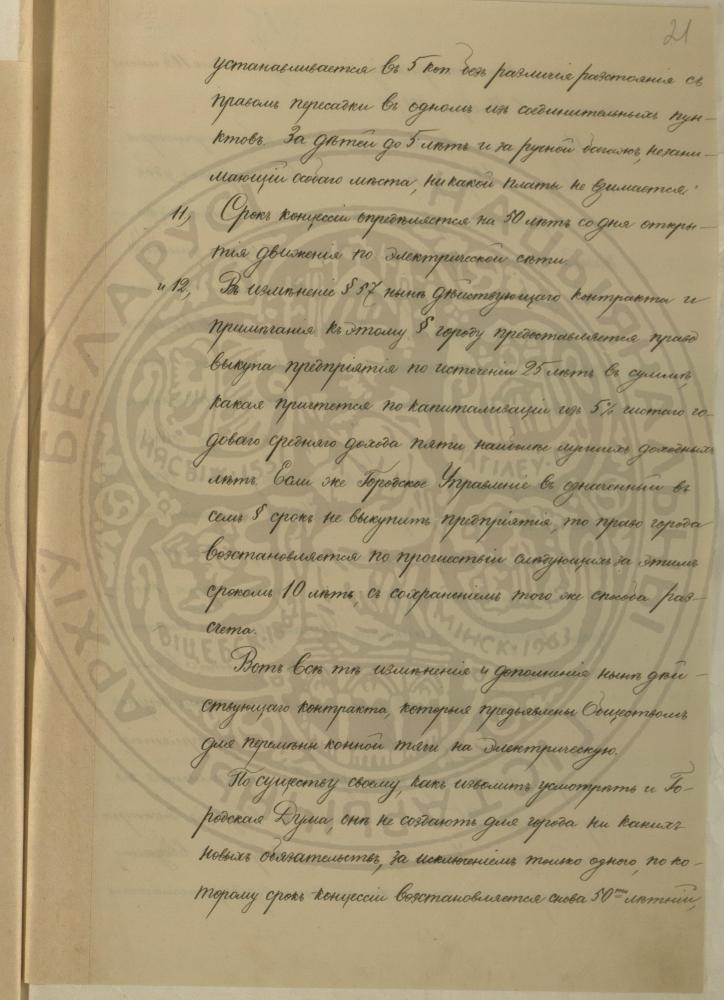 21
устанавливается въ 5 коп. безъ различія разстоянія съ
правомъ пересадки въ одномъ изъ соединительныхъ пун-
ктовъ. За дѣтей до 5 лѣтъ и за ручной багажъ, незани-
мающій особаго мѣста, никакой платы не взимается.
11, Срокъ концессіи опредѣляется на 50 лѣтъ со дня откры-
тія движенія по электрической сѣти.
и 12, Въ измѣненіе § 57 нынѣ дѣйствующаго контракта и
примѣчанія къ этому § городу предоставляется право
выкупа предпріятія по истеченіи 25 лѣтъ въ суммѣ,
какая причтется по капитализаціи изъ 5% чистаго го-
доваго средняго дохода пяти наиболѣе лучшихъ доходныхъ
лѣтъ. Если же Городское Управленіе въ означенный въ
семъ § срокъ не выкупитъ предпріятія, то право города
возстановляется по прошествіи слѣдующихъ за этимъ
срокомъ 10 лѣтъ, съ сохраненіемъ того же способа раз-
счета.
Вотъ всѣ тѣ измѣненія и дополненія нынѣ дѣй-
ствующаго контракта, которыя предъявлены Обществомъ
для перемѣны конной тяги на электрическую.
По существу своему, какъ изволитъ усмотрѣть и Го-
родская Дума, они не создаютъ для города ни какихъ
новыхъ обязательствъ, за исключеніемъ только одного, по ко-
торому срокъ концессіи возстановляется снова 50ти лѣтній,
АРХІЎ БЕЛАРУСІ
НЯСВІЖ
МАГІЛЕЎ
ВІЦЕБСК
МІНСК 1963